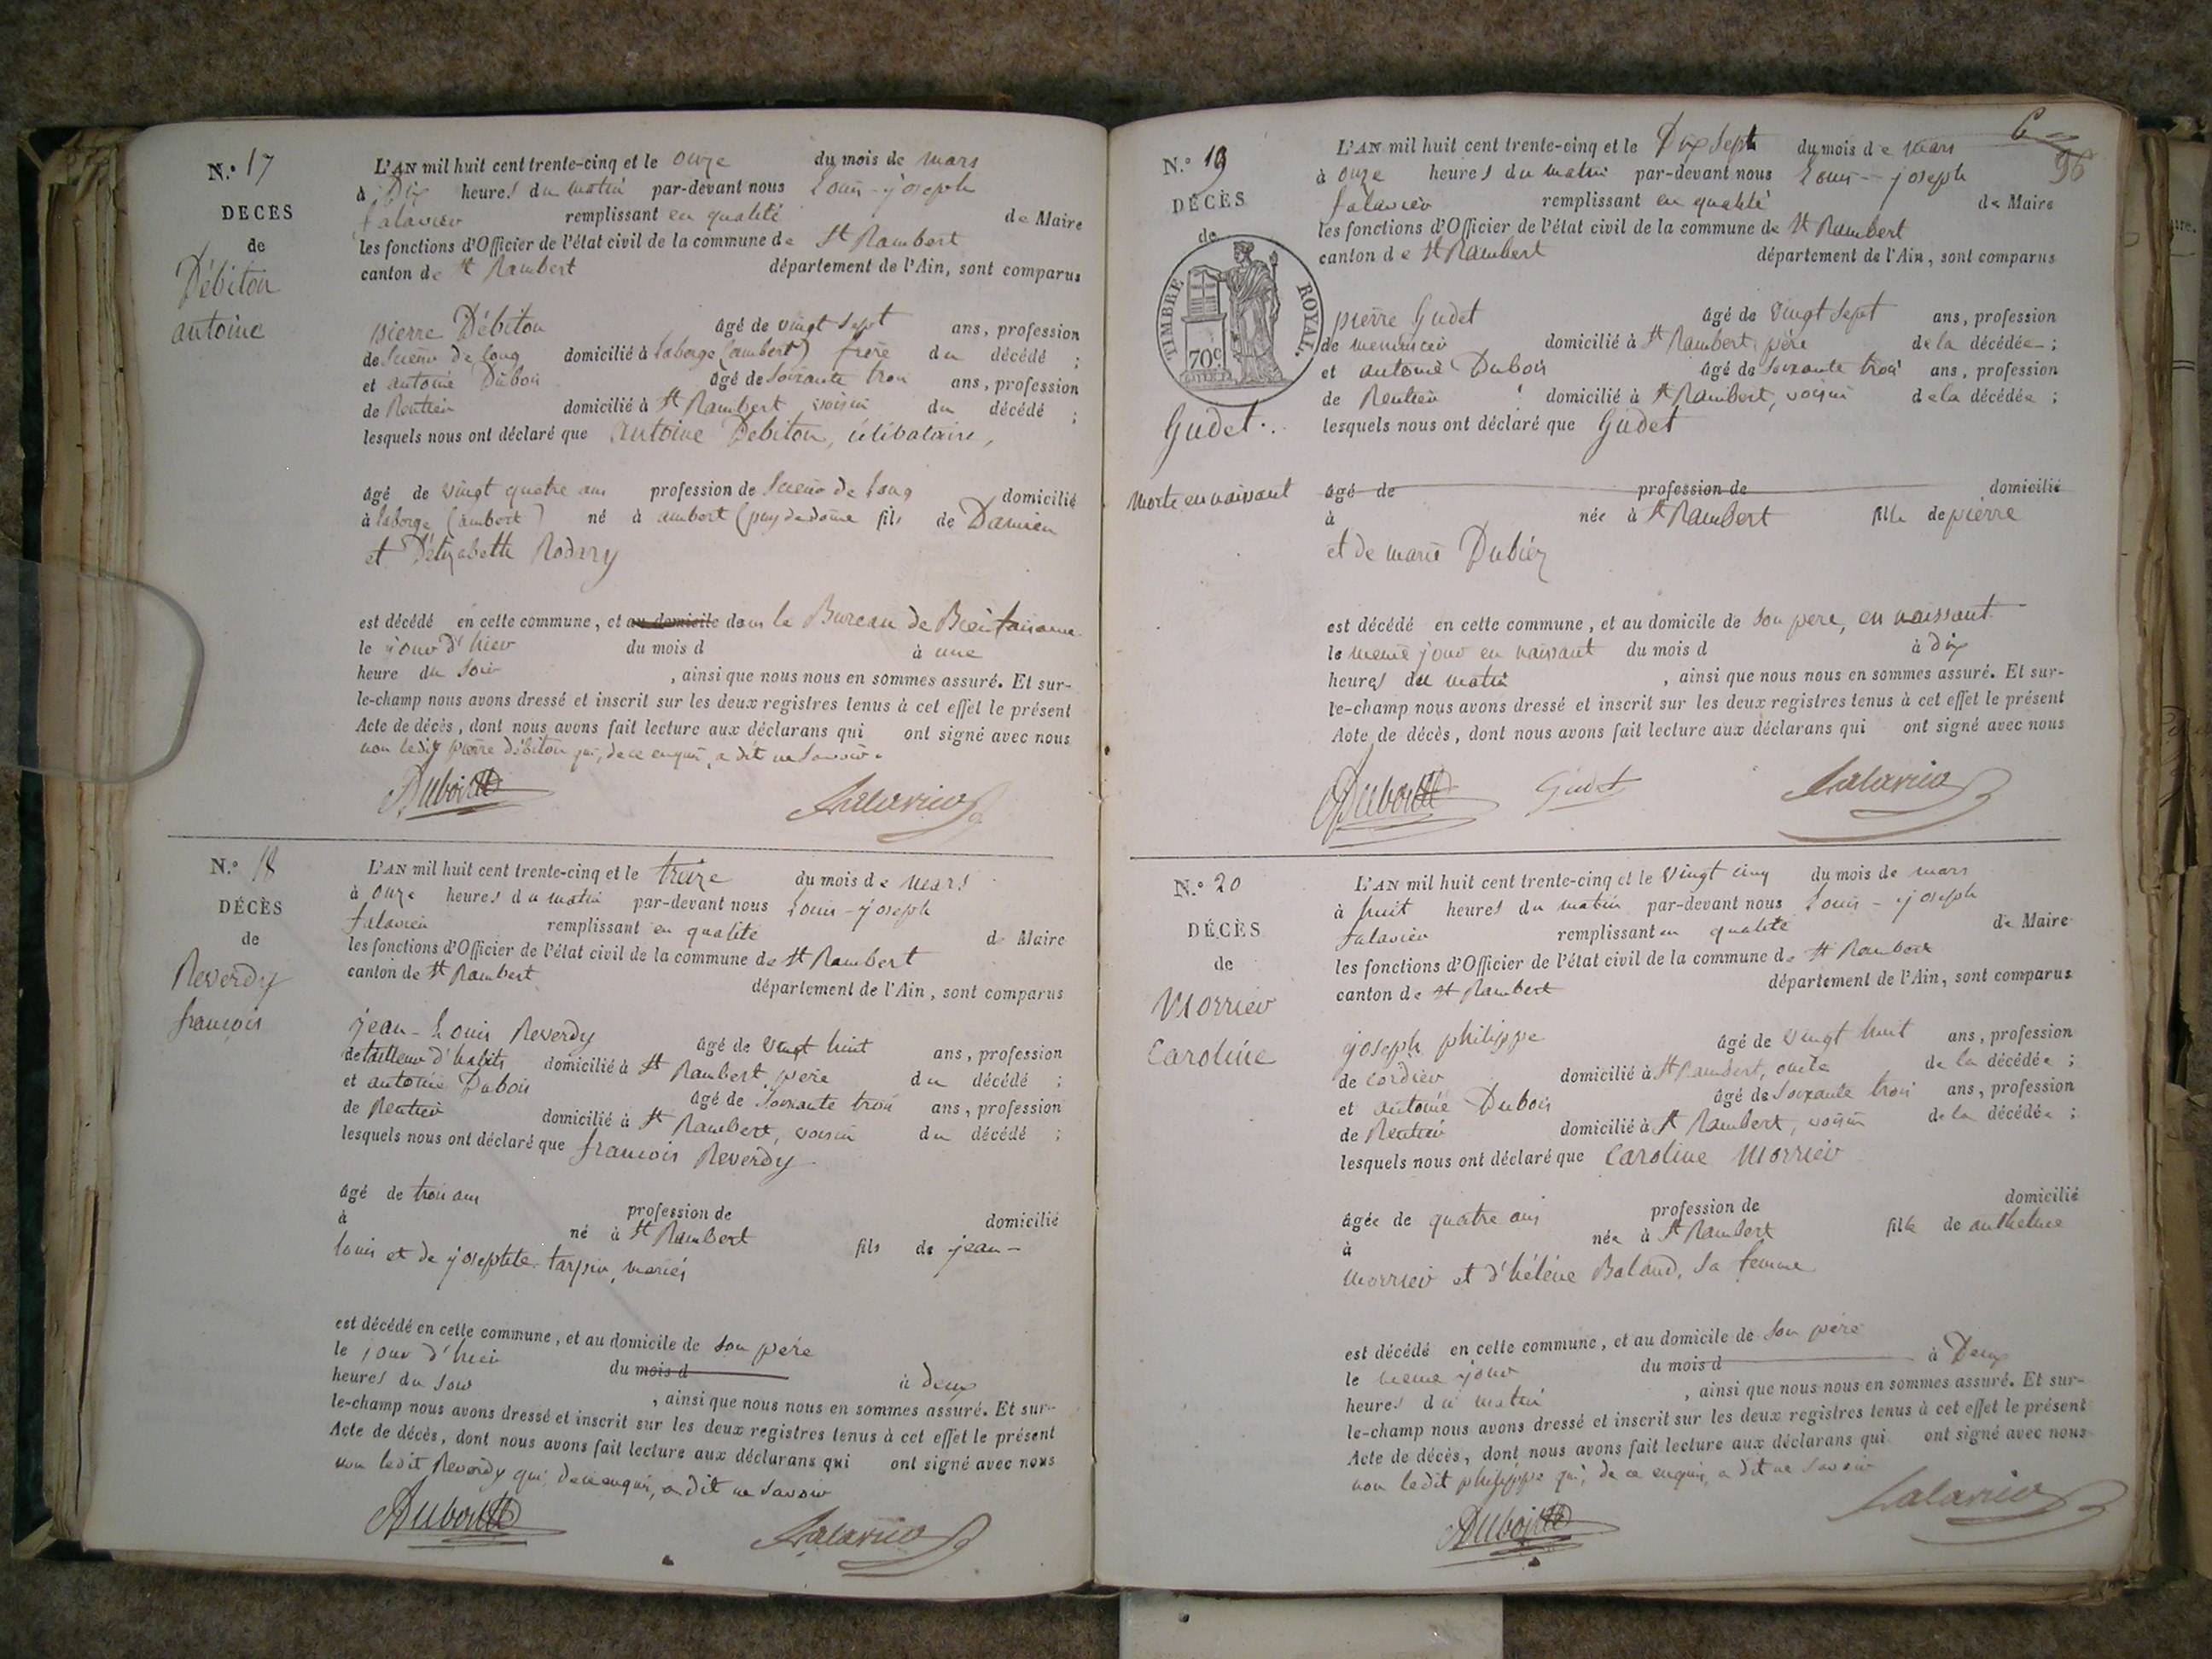 N.o 17
DECES
de
Débiton
antoine
L'AN mil huit cent trente-cinq et le onze du mois de mars
à Dix heures du matin par-devant nous Louis-joseph
falavier remplissant en qualité de Maire
les fonctions d'Officier de l'état civil de la commune de St Rambert
canton de St Rambert département de l'Ain, sont comparus
pierre Débiton âgé de vingt sept ans, profession
de Scieur de long domicilié à laborge (ambert) frère du décédé ;
et antoine Dubois âgé de Soixante trois ans, profession
de Rentier domicilié à St Rambert voisin du décédé ;
lesquels nous ont déclaré que antoine Debiton, célibataire,
âgé de vingt quatre ans profession de Scieur de long domicilié
à laborge (ambert) né à ambert (puy de dome fils de Damien
et D'élizabeth Rodary
est décédé en cette commune, et au domicile dans le Bureau de Bienfaisance
le jour d'hier du mois d à une
heure du Soir , ainsi que nous nous en sommes assuré. Et sur-
le-champ nous avons dressé et inscrit sur les deux registres tenus à cet effet le présent
Acte de décès, dont nous avons fait lecture aux déclarans qui ont signé avec nous
non ledit pierre débiton qui, de ce enquis, a dit ne Savoir.
Dubois falavier
N.o 18
DÉCÈS
de
Reverdy
françois
L'AN mil huit cent trente-cinq et le treize du mois de mars
à onze heures du matin par-devant nous Louis-joseph
falavier remplissant en qualité de Maire
les fonctions d'Officier de l'état civil de la commune de St Rambert
canton de St Rambert département de l'Ain, sont comparus
jean-Louis Reverdy âgé de vingt huit ans, profession
de tailleur d'habits domicilié à St Rambert père du décédé ;
et antoine Dubois âgé de Soixante trois ans, profession
de Rentier domicilié à St Rambert, voisin du décédé ;
lesquels nous ont déclaré que françois Reverdy
âgé de trois ans profession de domicilié
à né à St Rambert fils de jean-
louis et de josephte tarpin, mariés
est décédé en cette commune, et au domicile de Son père
le jour d'hier du mois d à deux
heures du Soir , ainsi que nous nous en sommes assuré. Et sur-
le-champ nous avons dressé et inscrit sur les deux registres tenus à cet effet le présent
Acte de décès, dont nous avons fait lecture aux déclarans qui ont signé avec nous
non ledit Reverdy qui de ce enquis, a dit ne Savoir
Dubois falavier
96
N.o 19
DÉCÈS
de
TIMBRE ROYAL.
70c
Gudet.
Morte en naissant
L'AN mil huit cent trente-cinq et le Dix Sept du mois de mars
à onze heures du matin par-devant nous Louis-joseph
falavier remplissant en qualité de Maire
les fonctions d'Officier de l'état civil de la commune de St Rambert
canton de St Rambert département de l'Ain, sont comparus
pierre Gudet âgé de vingt sept ans, profession
de menuisier domicilié à St Rambert, père de la décédée ;
et antoine Dubois âgé de Soixante trois ans, profession
de Rentier domicilié à St Rambert, voisin de la décédée ;
lesquels nous ont déclaré que Gudet
âgé de profession de domicilié
à née à St Rambert fille de pierre
et de marie
est décédé en cette commune, et au domicile de Son père, en naissant
le même jour en naissant du mois d à dix
heures du matin , ainsi que nous nous en sommes assuré. Et sur-
le-champ nous avons dressé et inscrit sur les deux registres tenus à cet effet le présent
Acte de décès, dont nous avons fait lecture aux déclarans qui ont signé avec nous
Dubois Gudet falavier
N.o 20
DÉCÈS
de
Morrier
Caroline
L'AN mil huit cent trente-cinq et le vingt cinq du mois de mars
à huit heures du matin par-devant nous Louis-joseph
falavier remplissant en qualité de Maire
les fonctions d'Officier de l'état civil de la commune de St Rambert
canton de St Rambert département de l'Ain, sont comparus
joseph philippe âgé de vingt huit ans, profession
de cordier domicilié à St Rambert, oncle de la décédée ;
et antoine Dubois âgé de Soixante trois ans, profession
de Rentier domicilié à St Rambert, voisin de la décédée ;
lesquels nous ont déclaré que Caroline Morrier
âgée de quatre ans profession de domicilié
à née à St Rambert fille de anthelme
morrier et d'hélène Baland, Sa femme
est décédé en cette commune, et au domicile de Son père
le meme jour du mois d à Deux
heures du matin , ainsi que nous nous en sommes assuré. Et sur-
le-champ nous avons dressé et inscrit sur les deux registres tenus à cet effet le présent
Acte de décès, dont nous avons fait lecture aux déclarans qui ont signé avec nous
non ledit philippe qui, de ce enquis, a dit ne Savoir
Dubois falavier